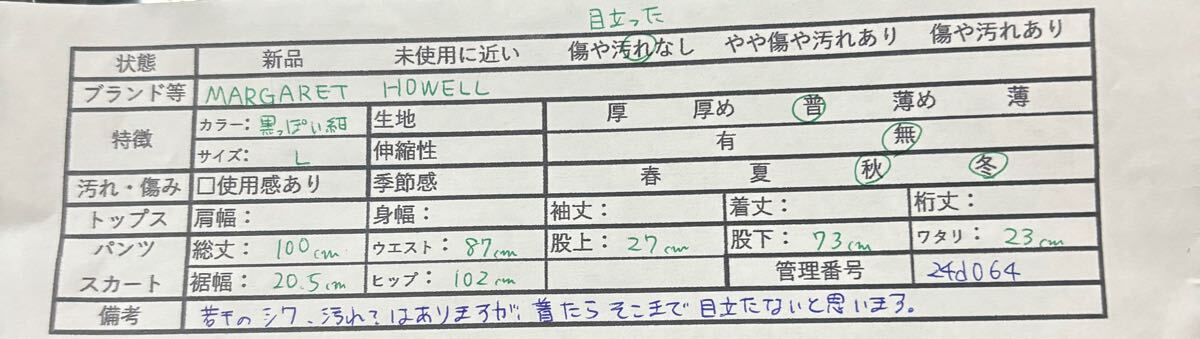 目立った
状態 新品 未使用に近い 傷や汚れなし やや傷や汚れあり 傷や汚れあり
ブランド等 MARGARET HOWELL
特徴 カラー:黒っぽい紺 生地 厚 厚め 普 薄め 薄
サイズ: L 伸縮性 有 無
汚れ・傷み □使用感あり 季節感 春 夏 秋 冬
トップス 肩幅: 身幅: 袖丈: 着丈: 桁丈:
パンツ 総丈: 100cm ウエスト: 87cm 股上: 27cm 股下: 73cm ワタリ: 23cm
スカート 裾幅: 20.5cm ヒップ: 102cm 管理番号 24d064
備考 若干のシワ、汚れ はありますが、着たらそこまで目立たないと思います。